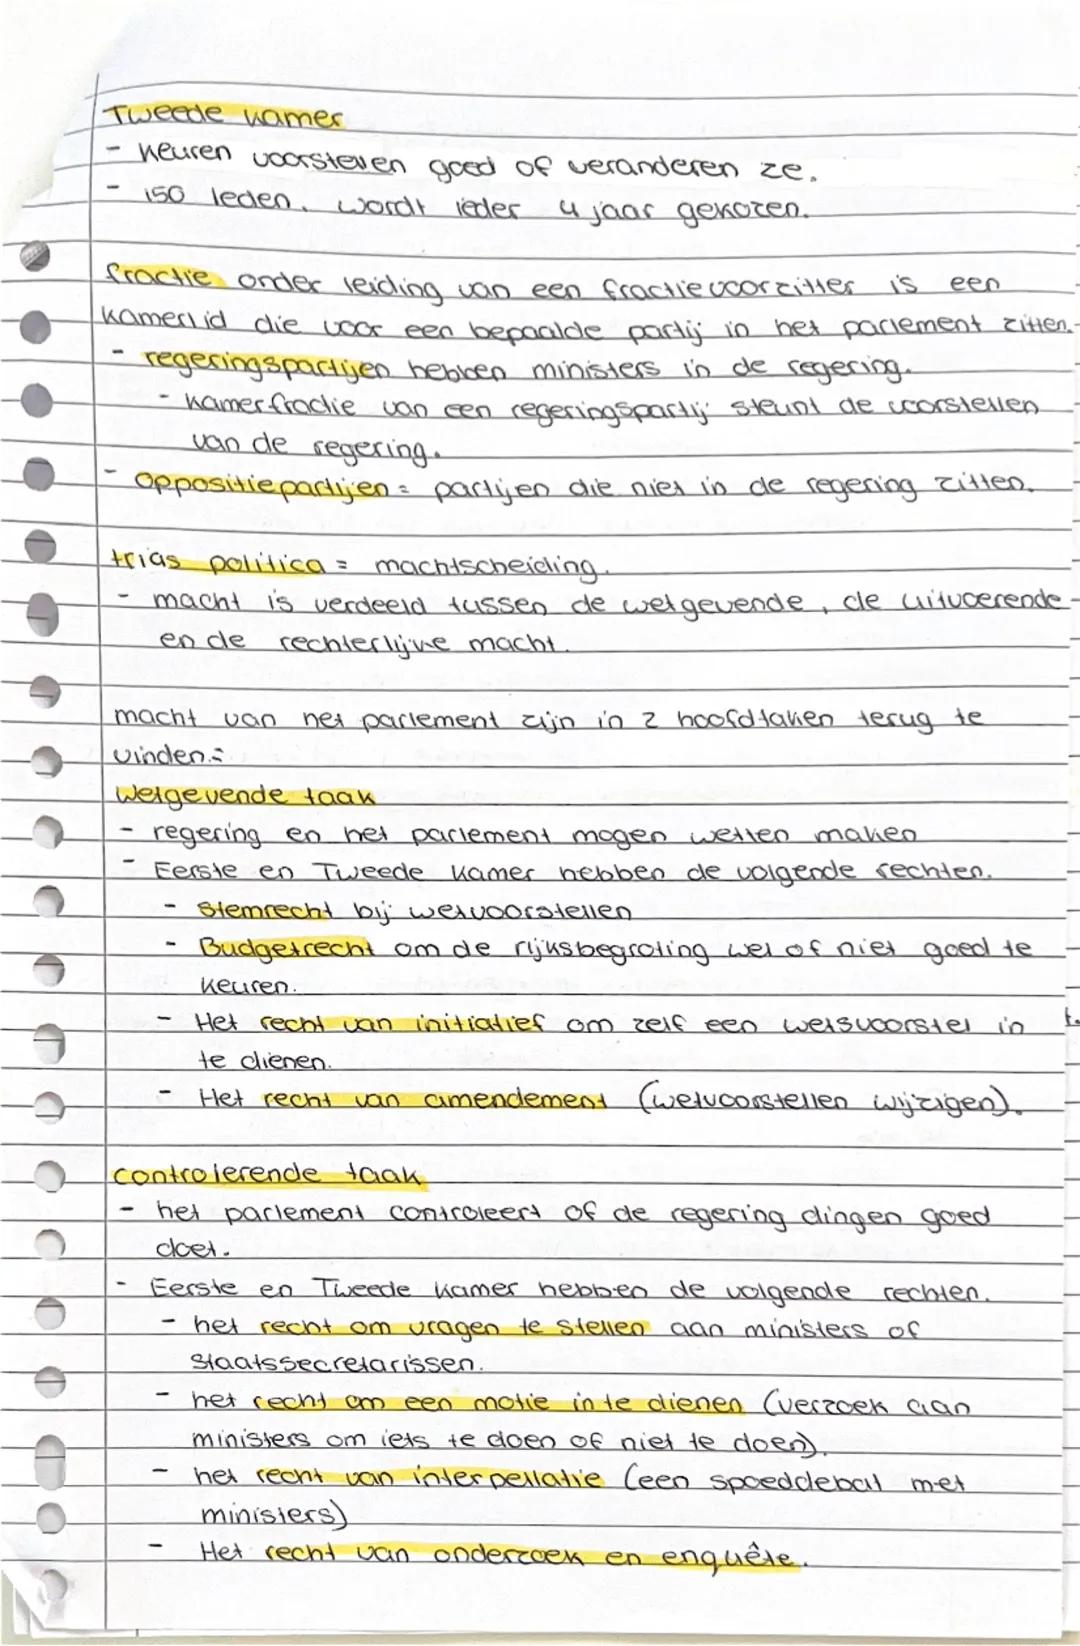 Tweede kamer
- keuren voorstellen goed of veranderen ze.
- 150 leden. wordt ieder 4 jaar gekozen.
fractie onder leiding van een fractievoorzitter is een
kamerlid die voor een bepaalde partij in het parlement zitten.
- regeringspartijen hebben ministers in de regering.
- kamerfractie van een regeringspartij steunt de voorstellen
van de regering.
- oppositiepartijen = partijen die niet in de regering zitten.
trias politica = machtscheiding.
- macht is verdeeld tussen de wetgevende, de uitvoerende
en de rechterlijke macht.
macht van het parlement zijn in 2 hoofdtaken terug te
vinden:
wetgevende taak
- regering en het parlement mogen wetten maken
- Eerste en Tweede kamer hebben de volgende rechten.
- stemrecht bij wetvoorstellen
- Budgetrecht om de rijksbegroting wel of niet goed te
keuren.
- Het recht van initiatief om zelf een wetsvoorstel in
te dienen.
- Het recht van amendement (wetvoorstellen wijzigen).
controlerende taak
- het parlement controleert of de regering dingen goed
doet.
- Eerste en Tweede kamer hebben de volgende rechten.
- het recht om vragen te stellen aan ministers of
staatssecretarissen.
- het recht om een motie in te dienen (verzoek aan
ministers om iets te doen of niet te doen).
- het recht van interpellatie (een spoeddebat met
ministers)
- Het recht van onderzoek en enquête.